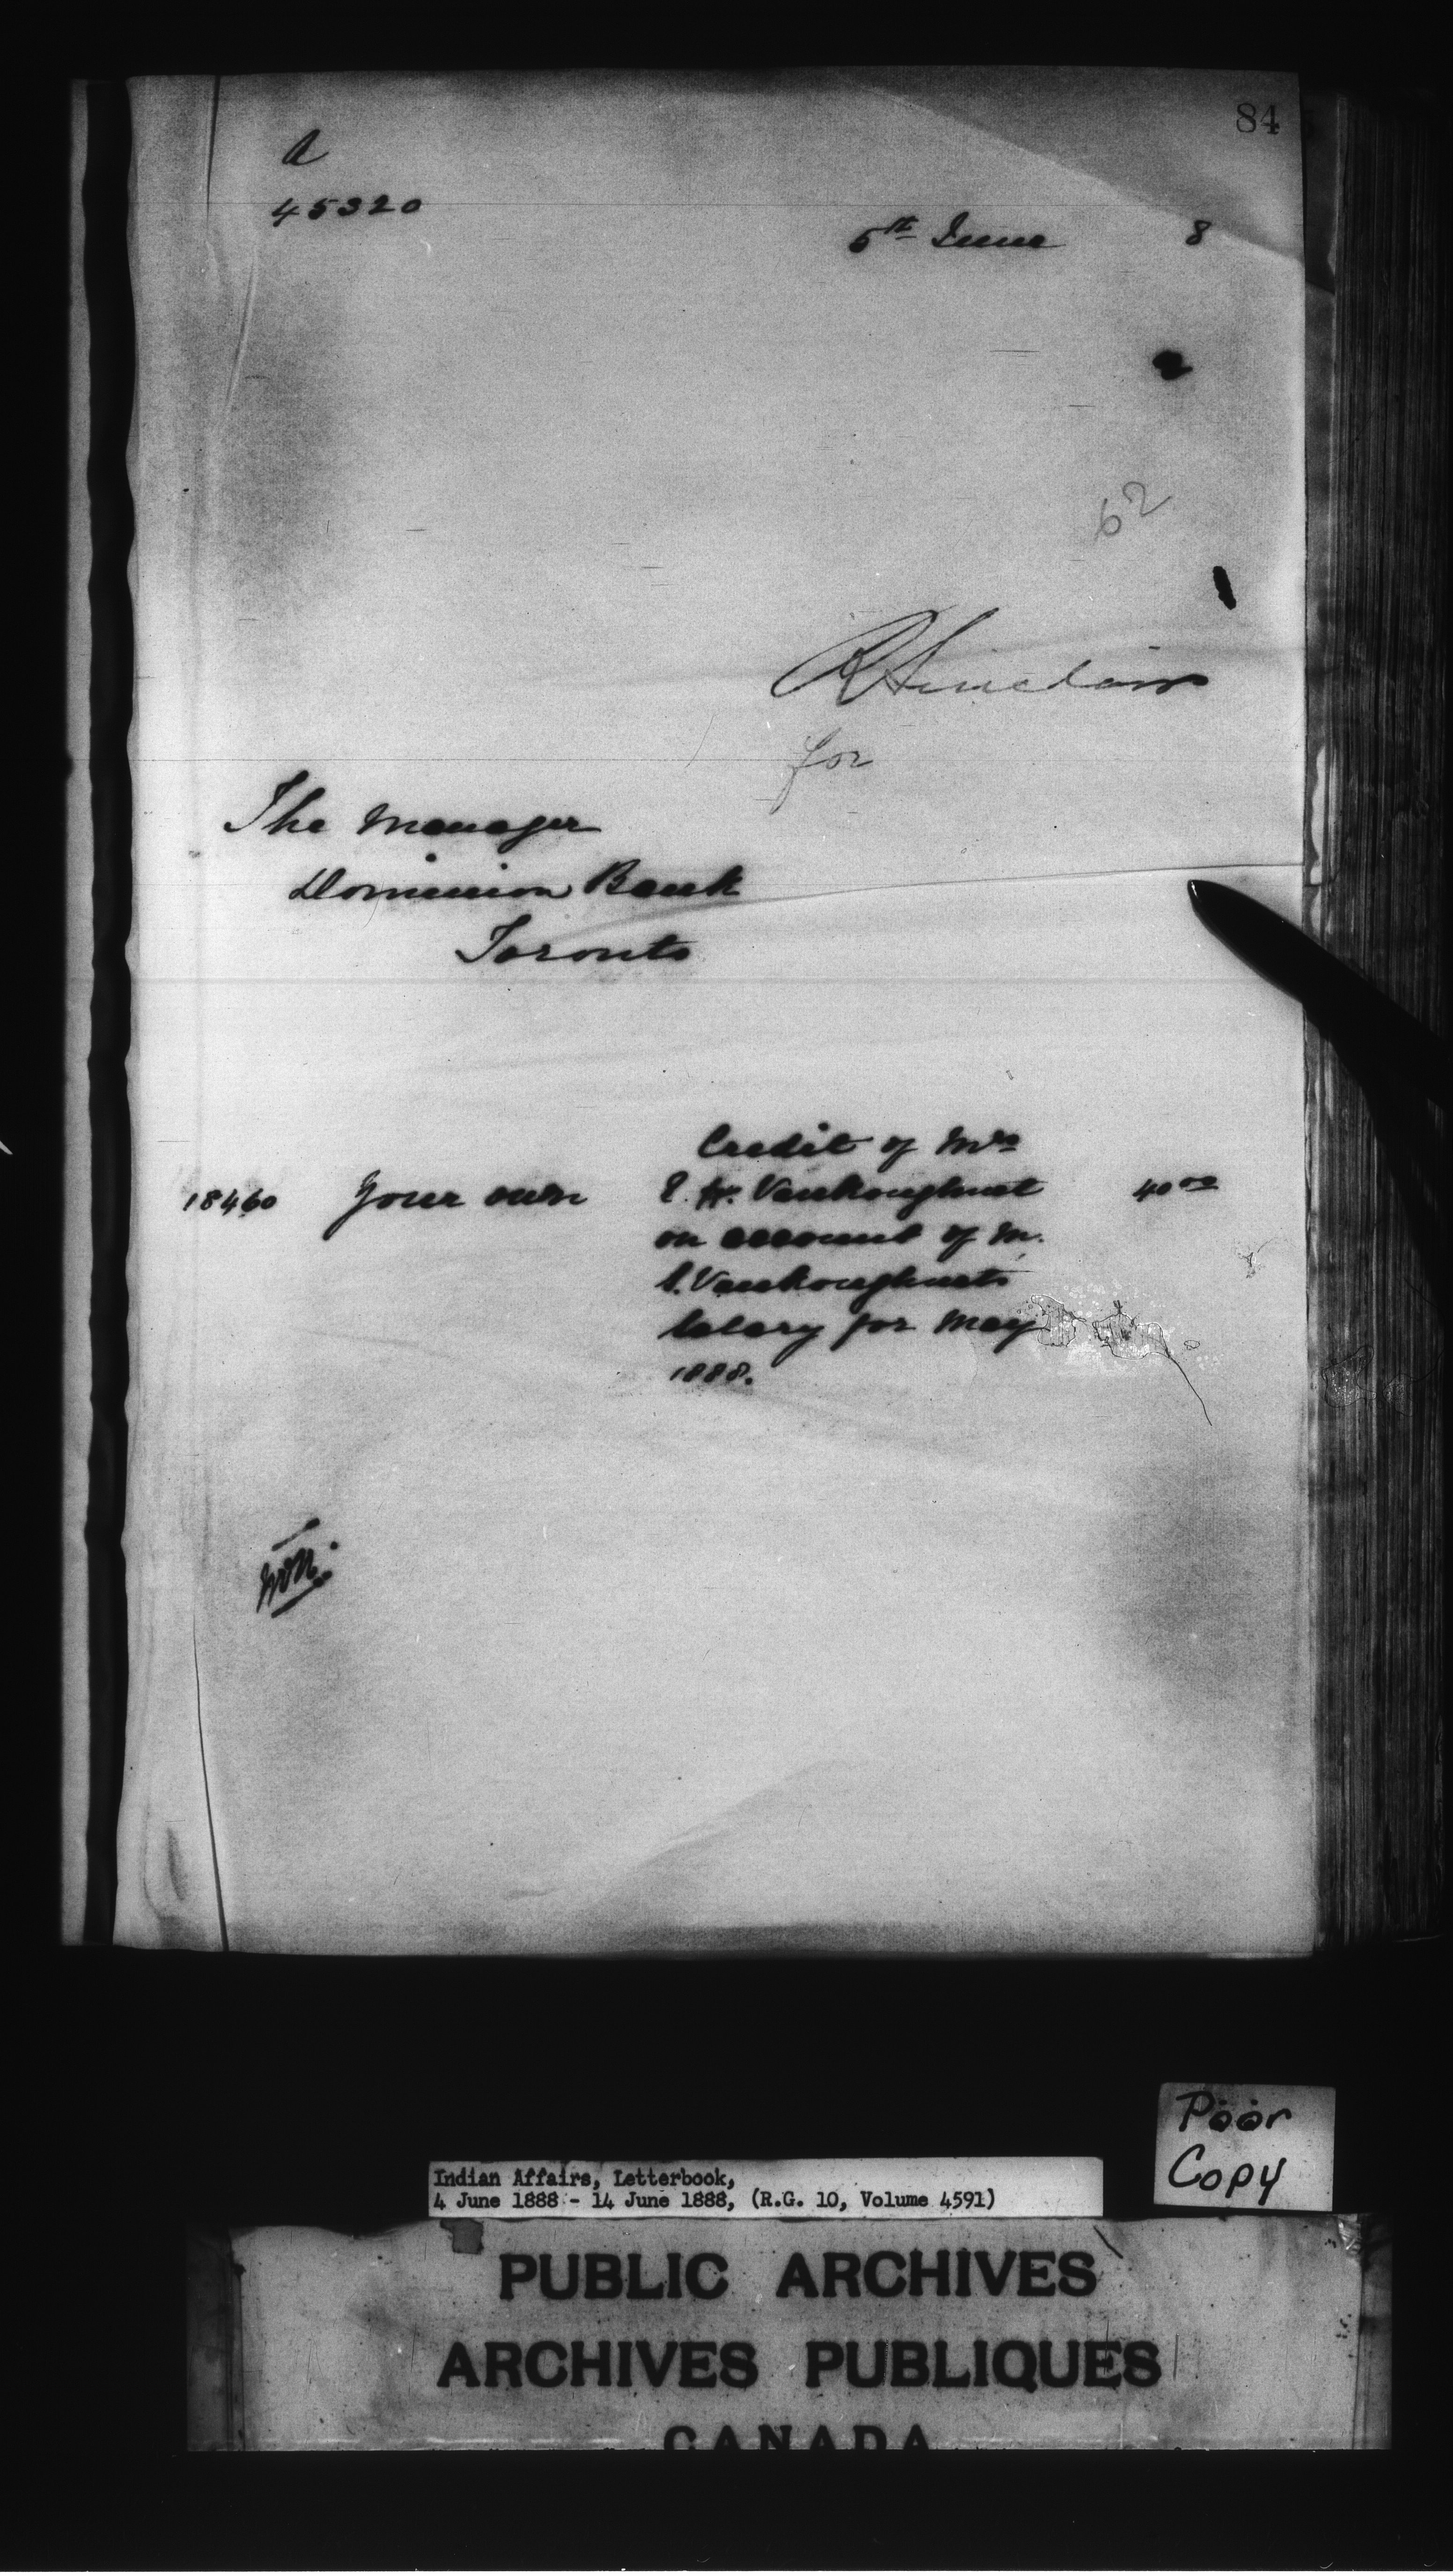 84
A
45320
5th June 8
2
62
R Sinclair
for
The Manager
Dominion Bank
Toronto
Credit of Mrs
18460 Your own E. H. Vankoughnet 40 00
on account of M.
S. Vankoughnet's
Salary for May
1888.
Poor
Copy
Indian Affairs, Letterbook,
4 June 1888 - 14 June 1888, (R.G. 10, Volume 4591)
PUBLIC ARCHIVES
ARCHIVES PUBLIQUES
CANADA